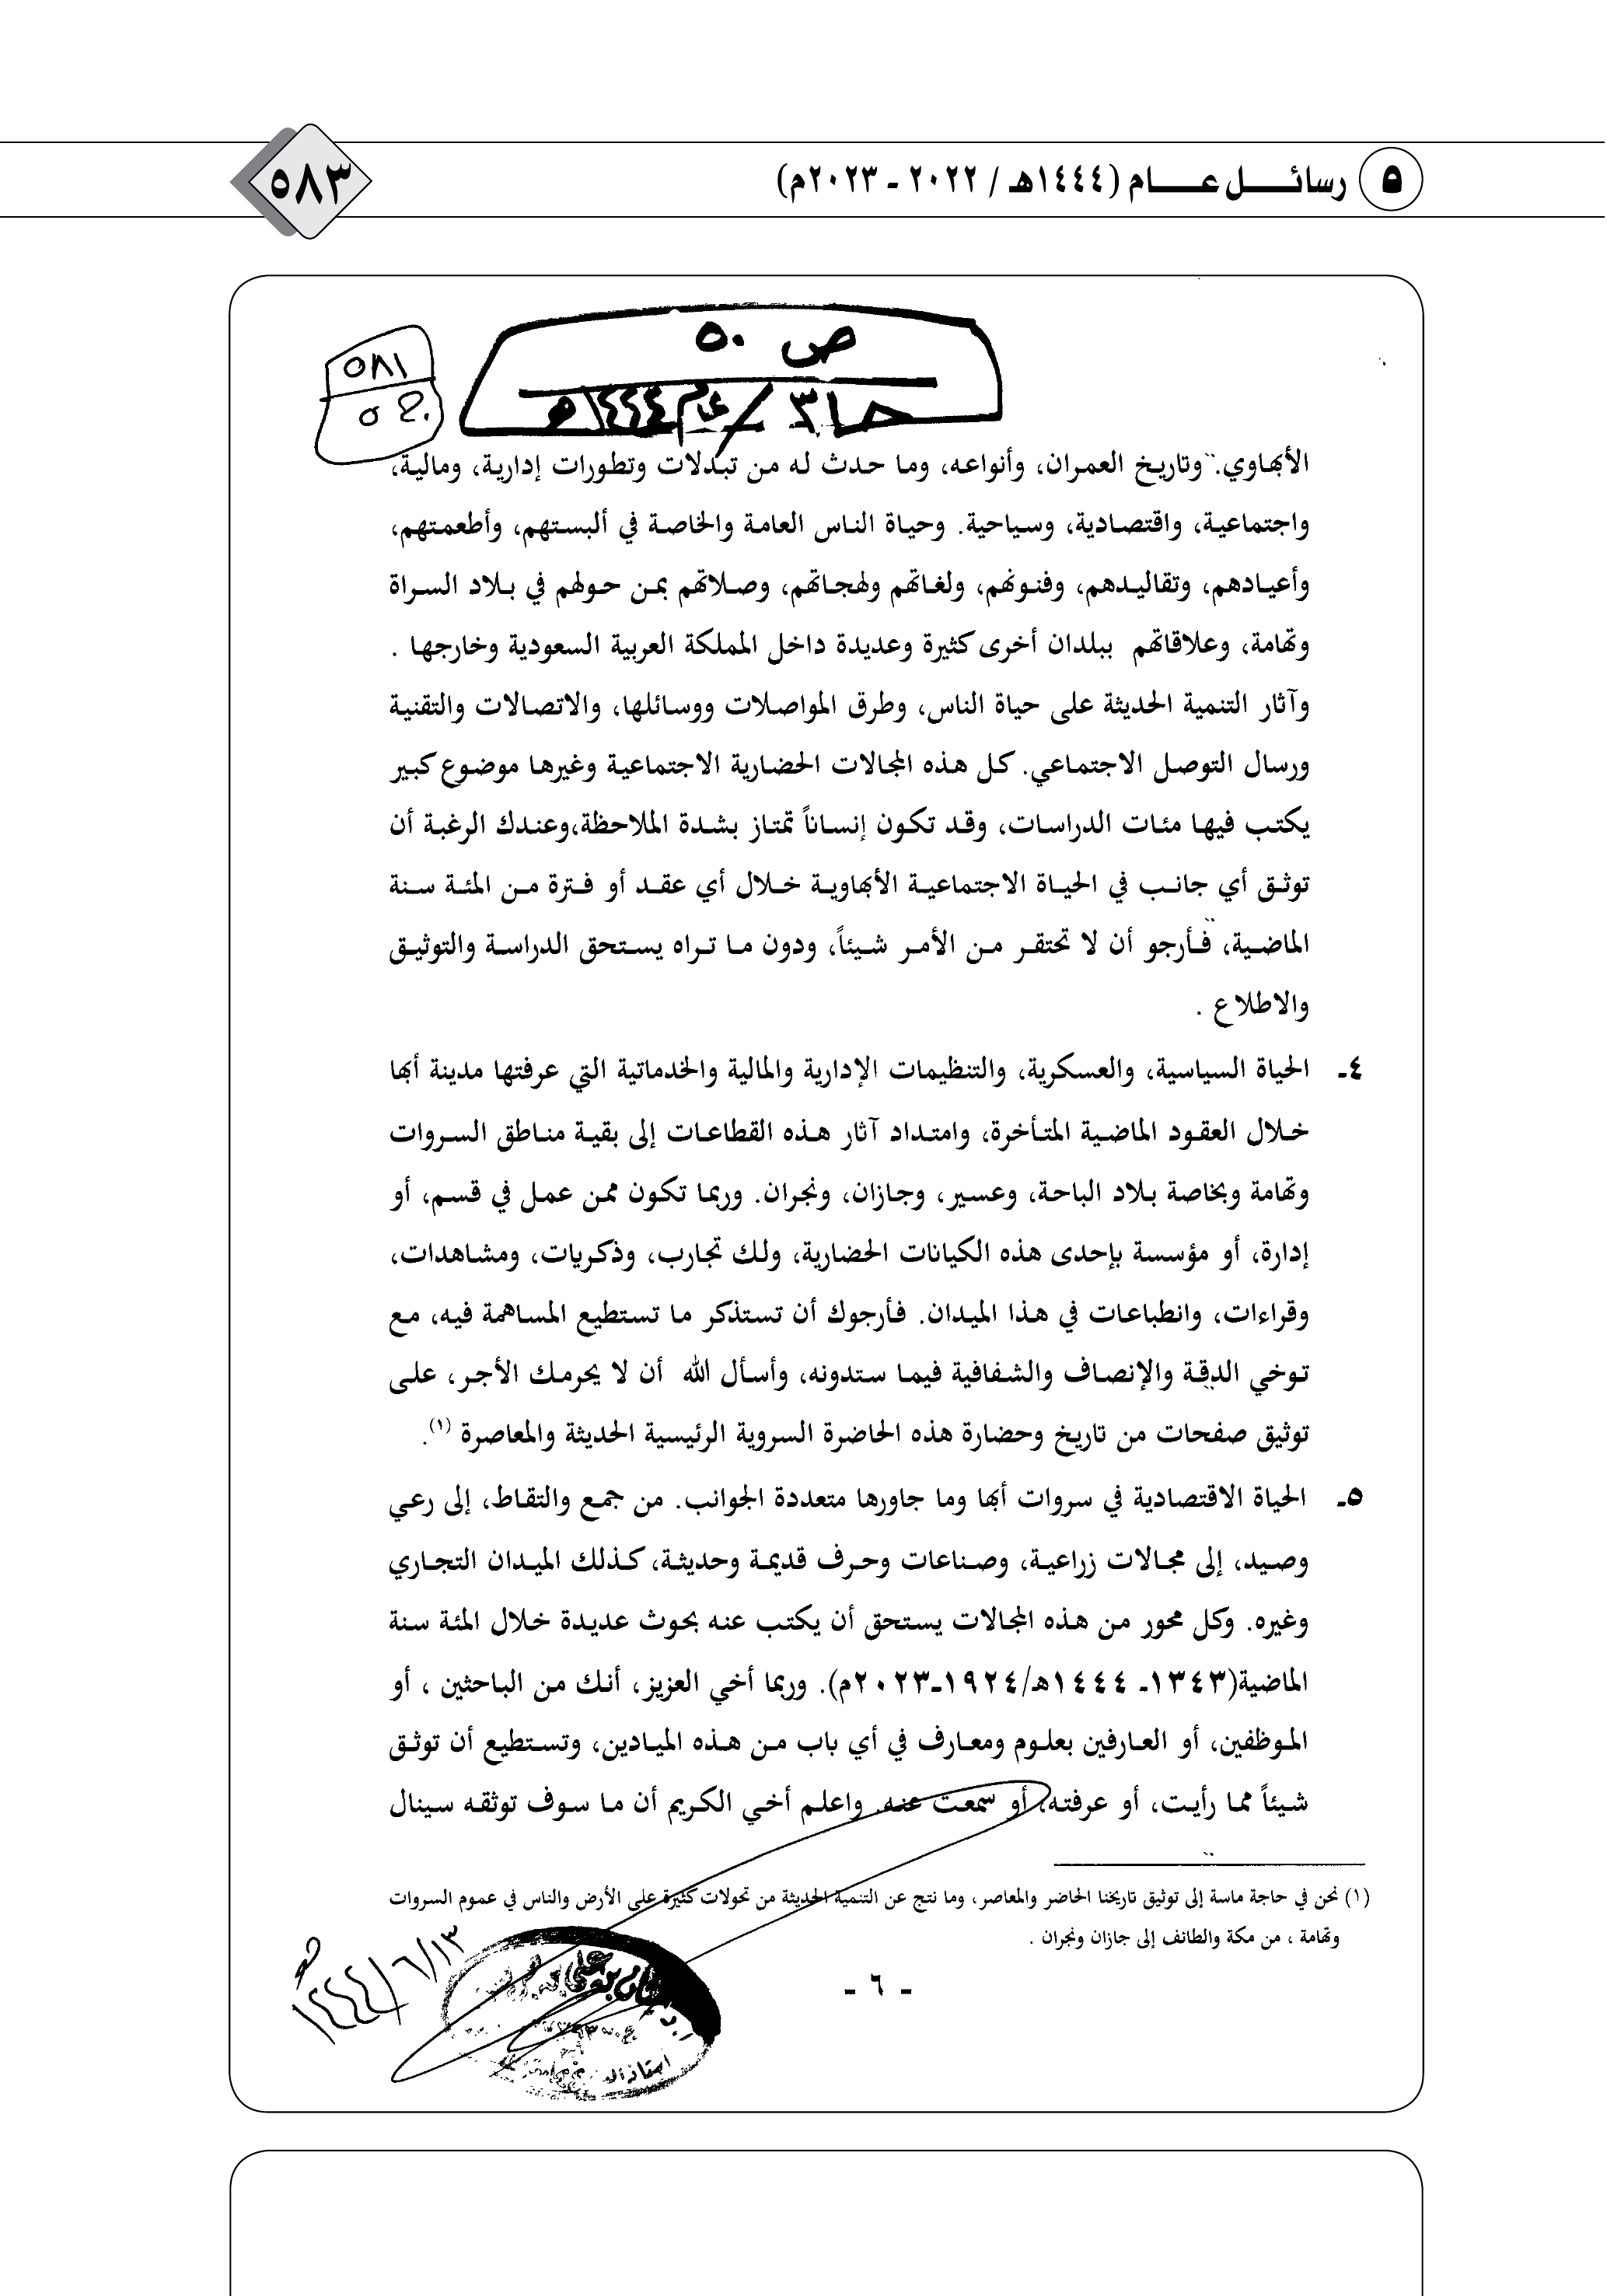 ٥ رسائـــــل عـــــــام (١٤٤٤هـ / ٢٠٢٢ ـ ٢٠٢٣م)
٥٨٣
ص ٥٠
حا٣ / عام ١٤٤٤هـ
٥٨١
٥٢٠
الأبهاوي. وتاريخ العمران، وأنواعه، وما حدث له من تبدلات وتطورات إدارية، ومالية،
واجتماعية، واقتصادية، وسياحية. وحياة الناس العامة والخاصة في ألبستهم، وأطعمتهم،
وأعيادهم، وتقاليدهم، وفنونهم، ولغاتهم ولهجاتهم، وصلاتهم بمن حولهم في بلاد السراة
وتهامة، وعلاقاتهم ببلدان أخرى كثيرة وعديدة داخل المملكة العربية السعودية وخارجها .
وآثار التنمية الحديثة على حياة الناس، وطرق المواصلات ووسائلها، والاتصالات والتقنية
ورسال التوصل الاجتماعي. كل هذه المجالات الحضارية الاجتماعية وغيرها موضوع كبير
يكتب فيها مئات الدراسات، وقد تكون إنساناً تمتاز بشدة الملاحظة،وعندك الرغبة أن
توثق أي جانب في الحياة الاجتماعية الأبهاوية خلال أي عقد أو فترة من المئة سنة
الماضية، فأرجو أن لا تحتقر من الأمر شيئاً، ودون ما تراه يستحق الدراسة والتوثيق
والاطلاع .
٤ـ الحياة السياسية، والعسكرية، والتنظيمات الإدارية والمالية والخدماتية التي عرفتها مدينة أبها
خلال العقود الماضية المتأخرة، وامتداد آثار هذه القطاعات إلى بقية مناطق السروات
وتهامة وبخاصة بلاد الباحة، وعسير، وجازان، ونجران. وربما تكون ممن عمل في قسم، أو
إدارة، أو مؤسسة بإحدى هذه الكيانات الحضارية، ولك تجارب، وذكريات، ومشاهدات،
وقراءات، وانطباعات في هذا الميدان. فأرجوك أن تستذكر ما تستطيع المساهمة فيه، مع
توخي الدقة والإنصاف والشفافية فيما ستدونه، وأسأل الله أن لا يحرمك الأجر، على
توثيق صفحات من تاريخ وحضارة هذه الحاضرة السروية الرئيسية الحديثة والمعاصرة (١).
٥ـ الحياة الاقتصادية في سروات أبها وما جاورها متعددة الجوانب. من جمع والتقاط، إلى رعي
وصيد، إلى مجالات زراعية، وصناعات وحرف قديمة وحديثة، كذلك الميدان التجاري
وغيره. وكل محور من هذه المجالات يستحق أن يكتب عنه بحوث عديدة خلال المئة سنة
الماضية(١٣٤٣ـ ١٤٤٤هـ/١٩٢٤ـ٢٠٢٣م). وربما أخي العزيز، أنك من الباحثين ، أو
الموظفين، أو العارفين بعلوم ومعارف في أي باب من هذه الميادين، وتستطيع أن توثق
شيئاً مما رأيت، أو عرفته، أو سمعت عنه. واعلم أخي الكريم أن ما سوف توثقه سينال
(١) نحن في حاجة ماسة إلى توثيق تاريخنا الحاضر والمعاصر، وما نتج عن التنمية الحديثة من تحولات كثيرة على الأرض والناس في عموم السروات
وتهامة ، من مكة والطائف إلى جازان ونجران .
- ٦ -
١٤٤٤/٦/١٣